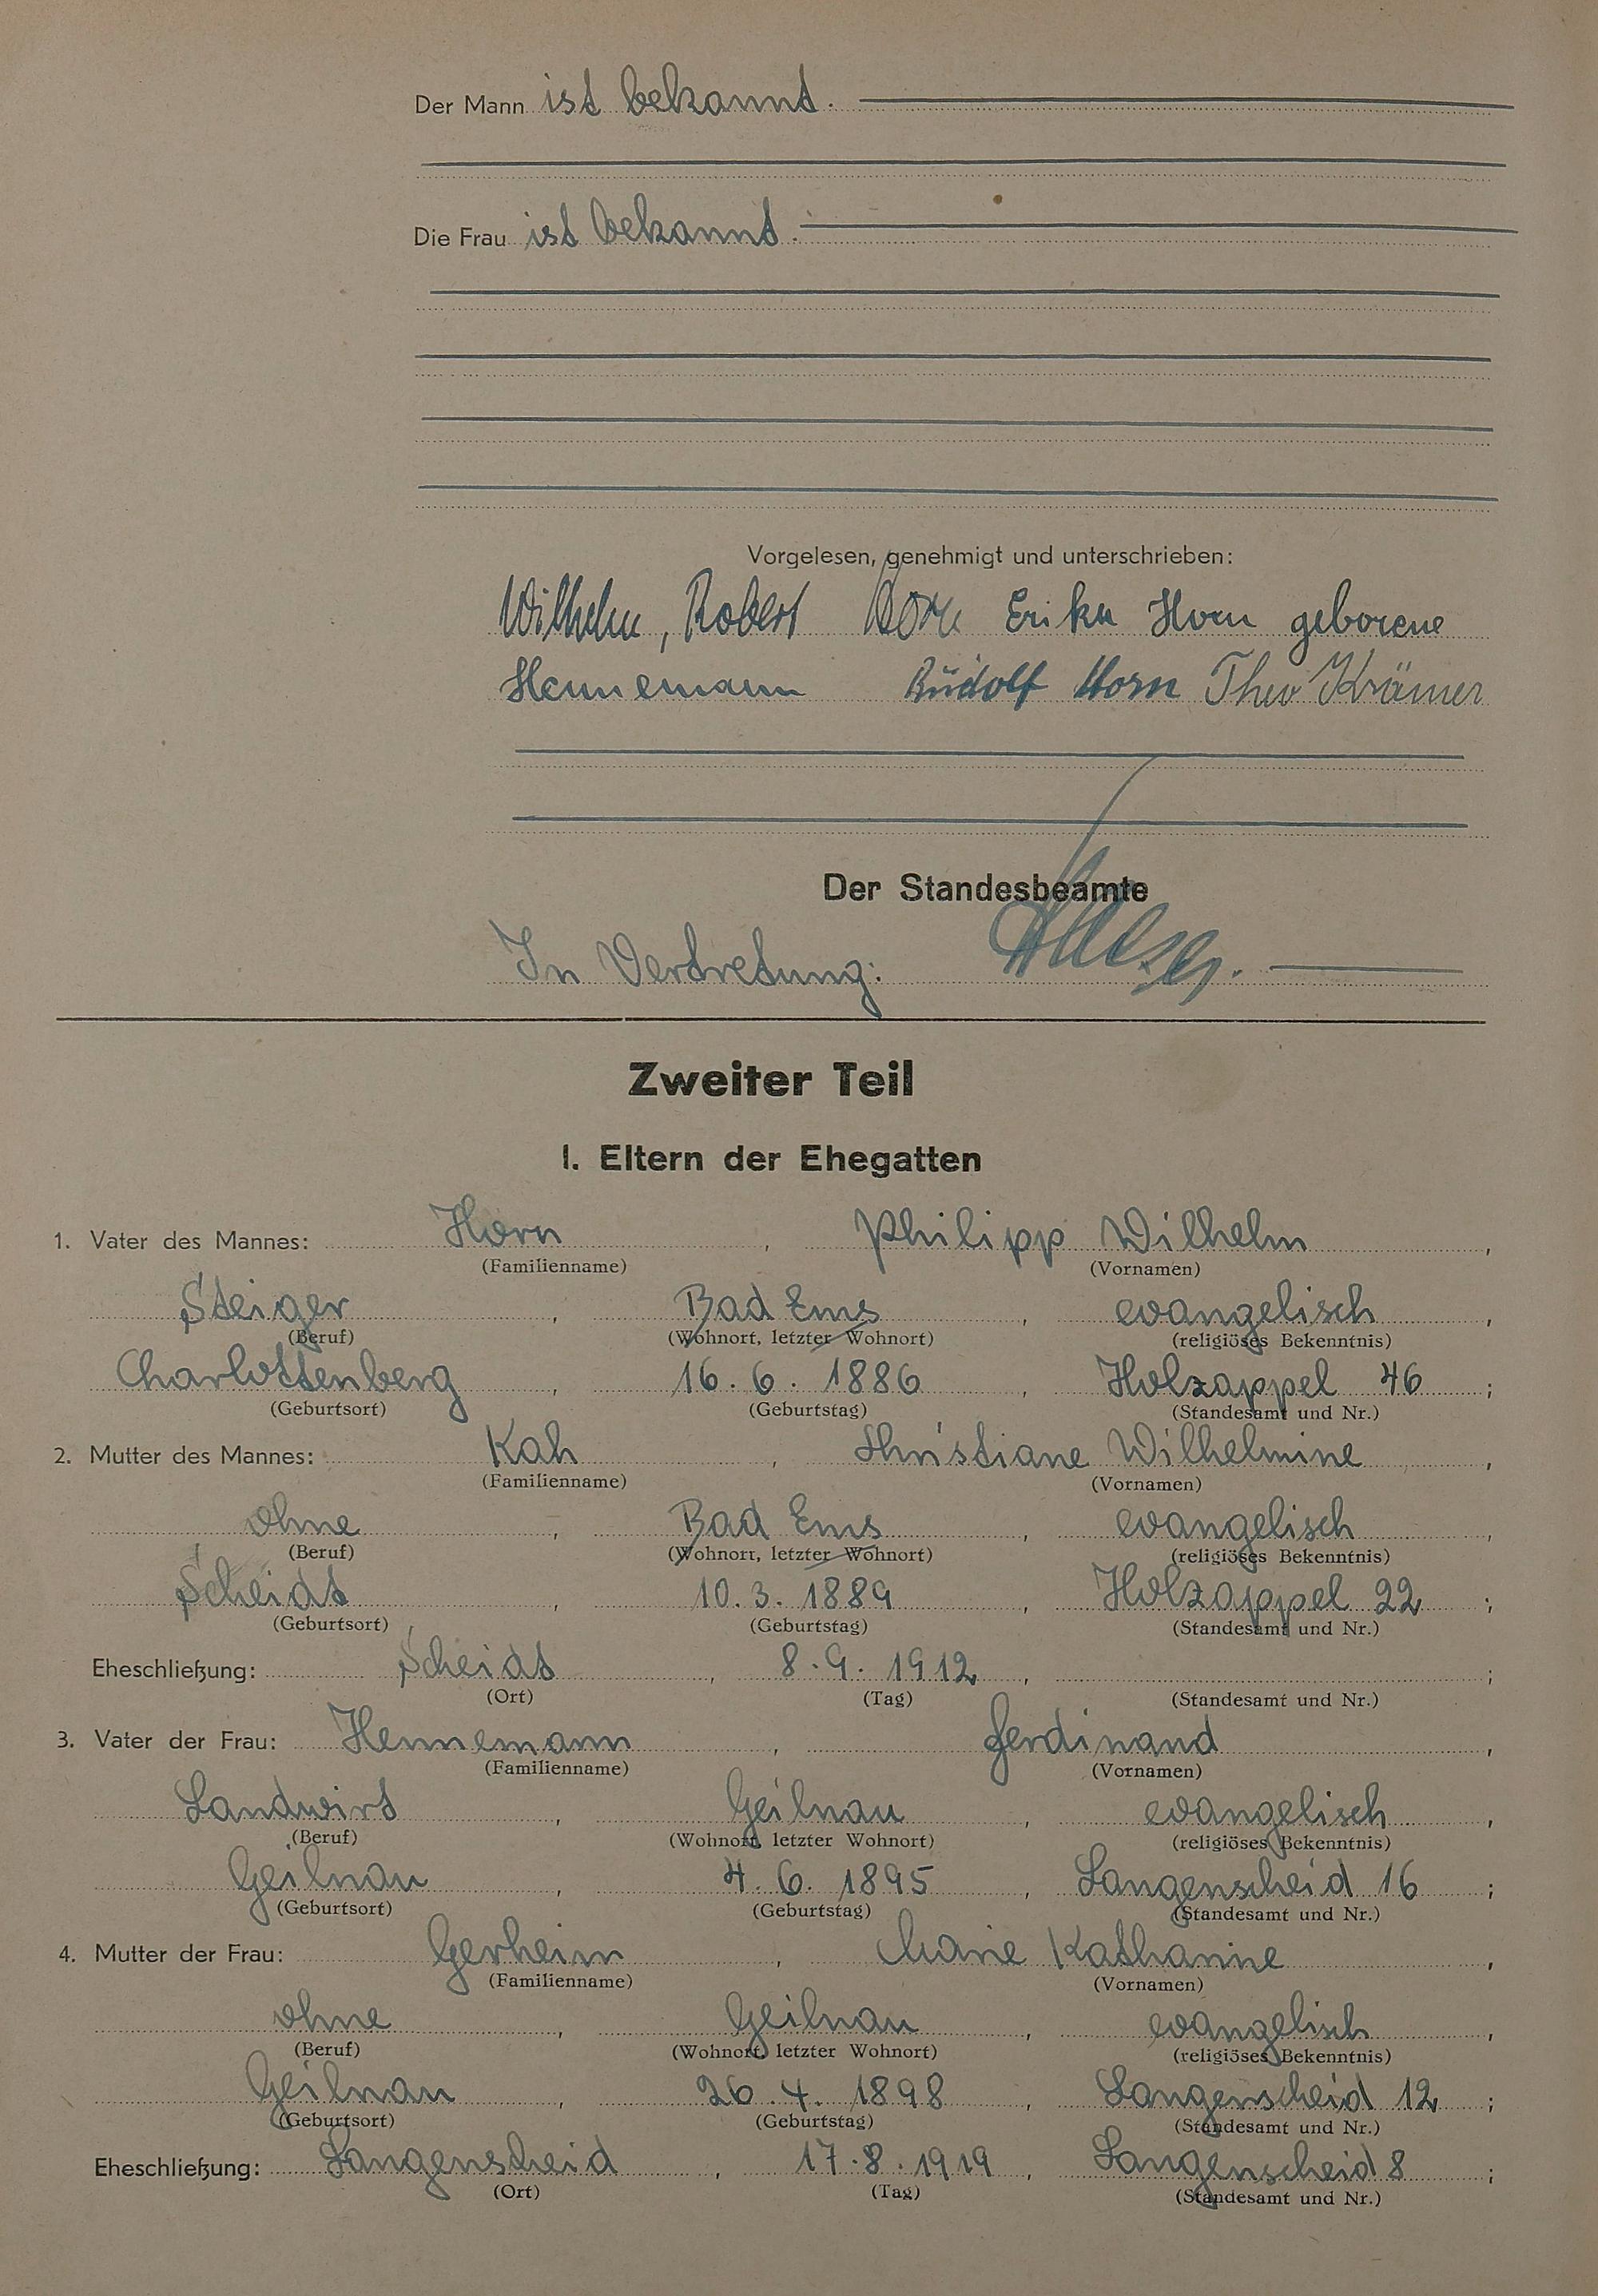 Der Mann ist bekannt.
Die Frau ist bekannt.
Vorgelesen, genehmigt und unterschrieben:
Wilhelm, Robert Horn Erika Horn geborene
Hennemann Rudolf Horn Theo Krämer
Der Standesbeamte
In Vertretung:
Zweiter Teil
I. Eltern der Ehegatten
1. Vater des Mannes: Horn, Philipp Wilhelm,
(Familienname) (Vornamen)
Steiger, Bad Ems, evangelisch,
(Beruf) (Wohnort, letzter Wohnort) (religiöses Bekenntnis)
Charlottenberg, 16.6.1886, Holzappel 46;
(Geburtsort) (Geburtstag) (Standesamt und Nr.)
2. Mutter des Mannes: Kah, Christiane Wilhelmine,
(Familienname) (Vornamen)
ohne, Bad Ems, evangelisch,
(Beruf) (Wohnort, letzter Wohnort) (religiöses Bekenntnis)
Scheidt, 10.3.1889, Holzappel 22;
(Geburtsort) (Geburtstag) (Standesamt und Nr.)
Eheschließung: Scheidt, 8.9.1912, ;
(Ort) (Tag) (Standesamt und Nr.)
3. Vater der Frau: Hennemann, Ferdinand,
(Familienname) (Vornamen)
Landwirt, Geilnau, evangelisch,
(Beruf) (Wohnort, letzter Wohnort) (religiöses Bekenntnis)
Geilnau, 4.6.1895, Langenscheid 16;
(Geburtsort) (Geburtstag) (Standesamt und Nr.)
4. Mutter der Frau: Gerheim, Marie Katharine,
(Familienname) (Vornamen)
ohne, Geilnau, evangelisch,
(Beruf) (Wohnort, letzter Wohnort) (religiöses Bekenntnis)
Geilnau, 26.4.1898, Langenscheid 12;
(Geburtsort) (Geburtstag) (Standesamt und Nr.)
Eheschließung: Langenscheid, 17.8.1919, Langenscheid 8;
(Ort) (Tag) (Standesamt und Nr.)